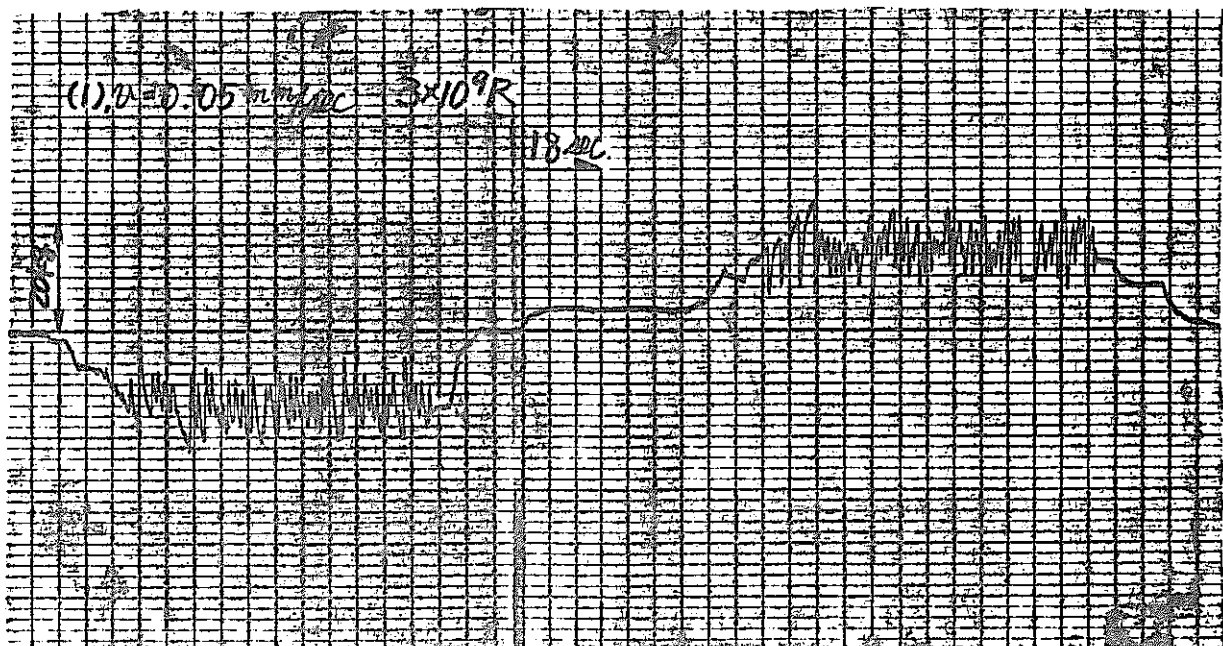 (1), v=0.05 mm/sec 3×10⁹R
18 sec.